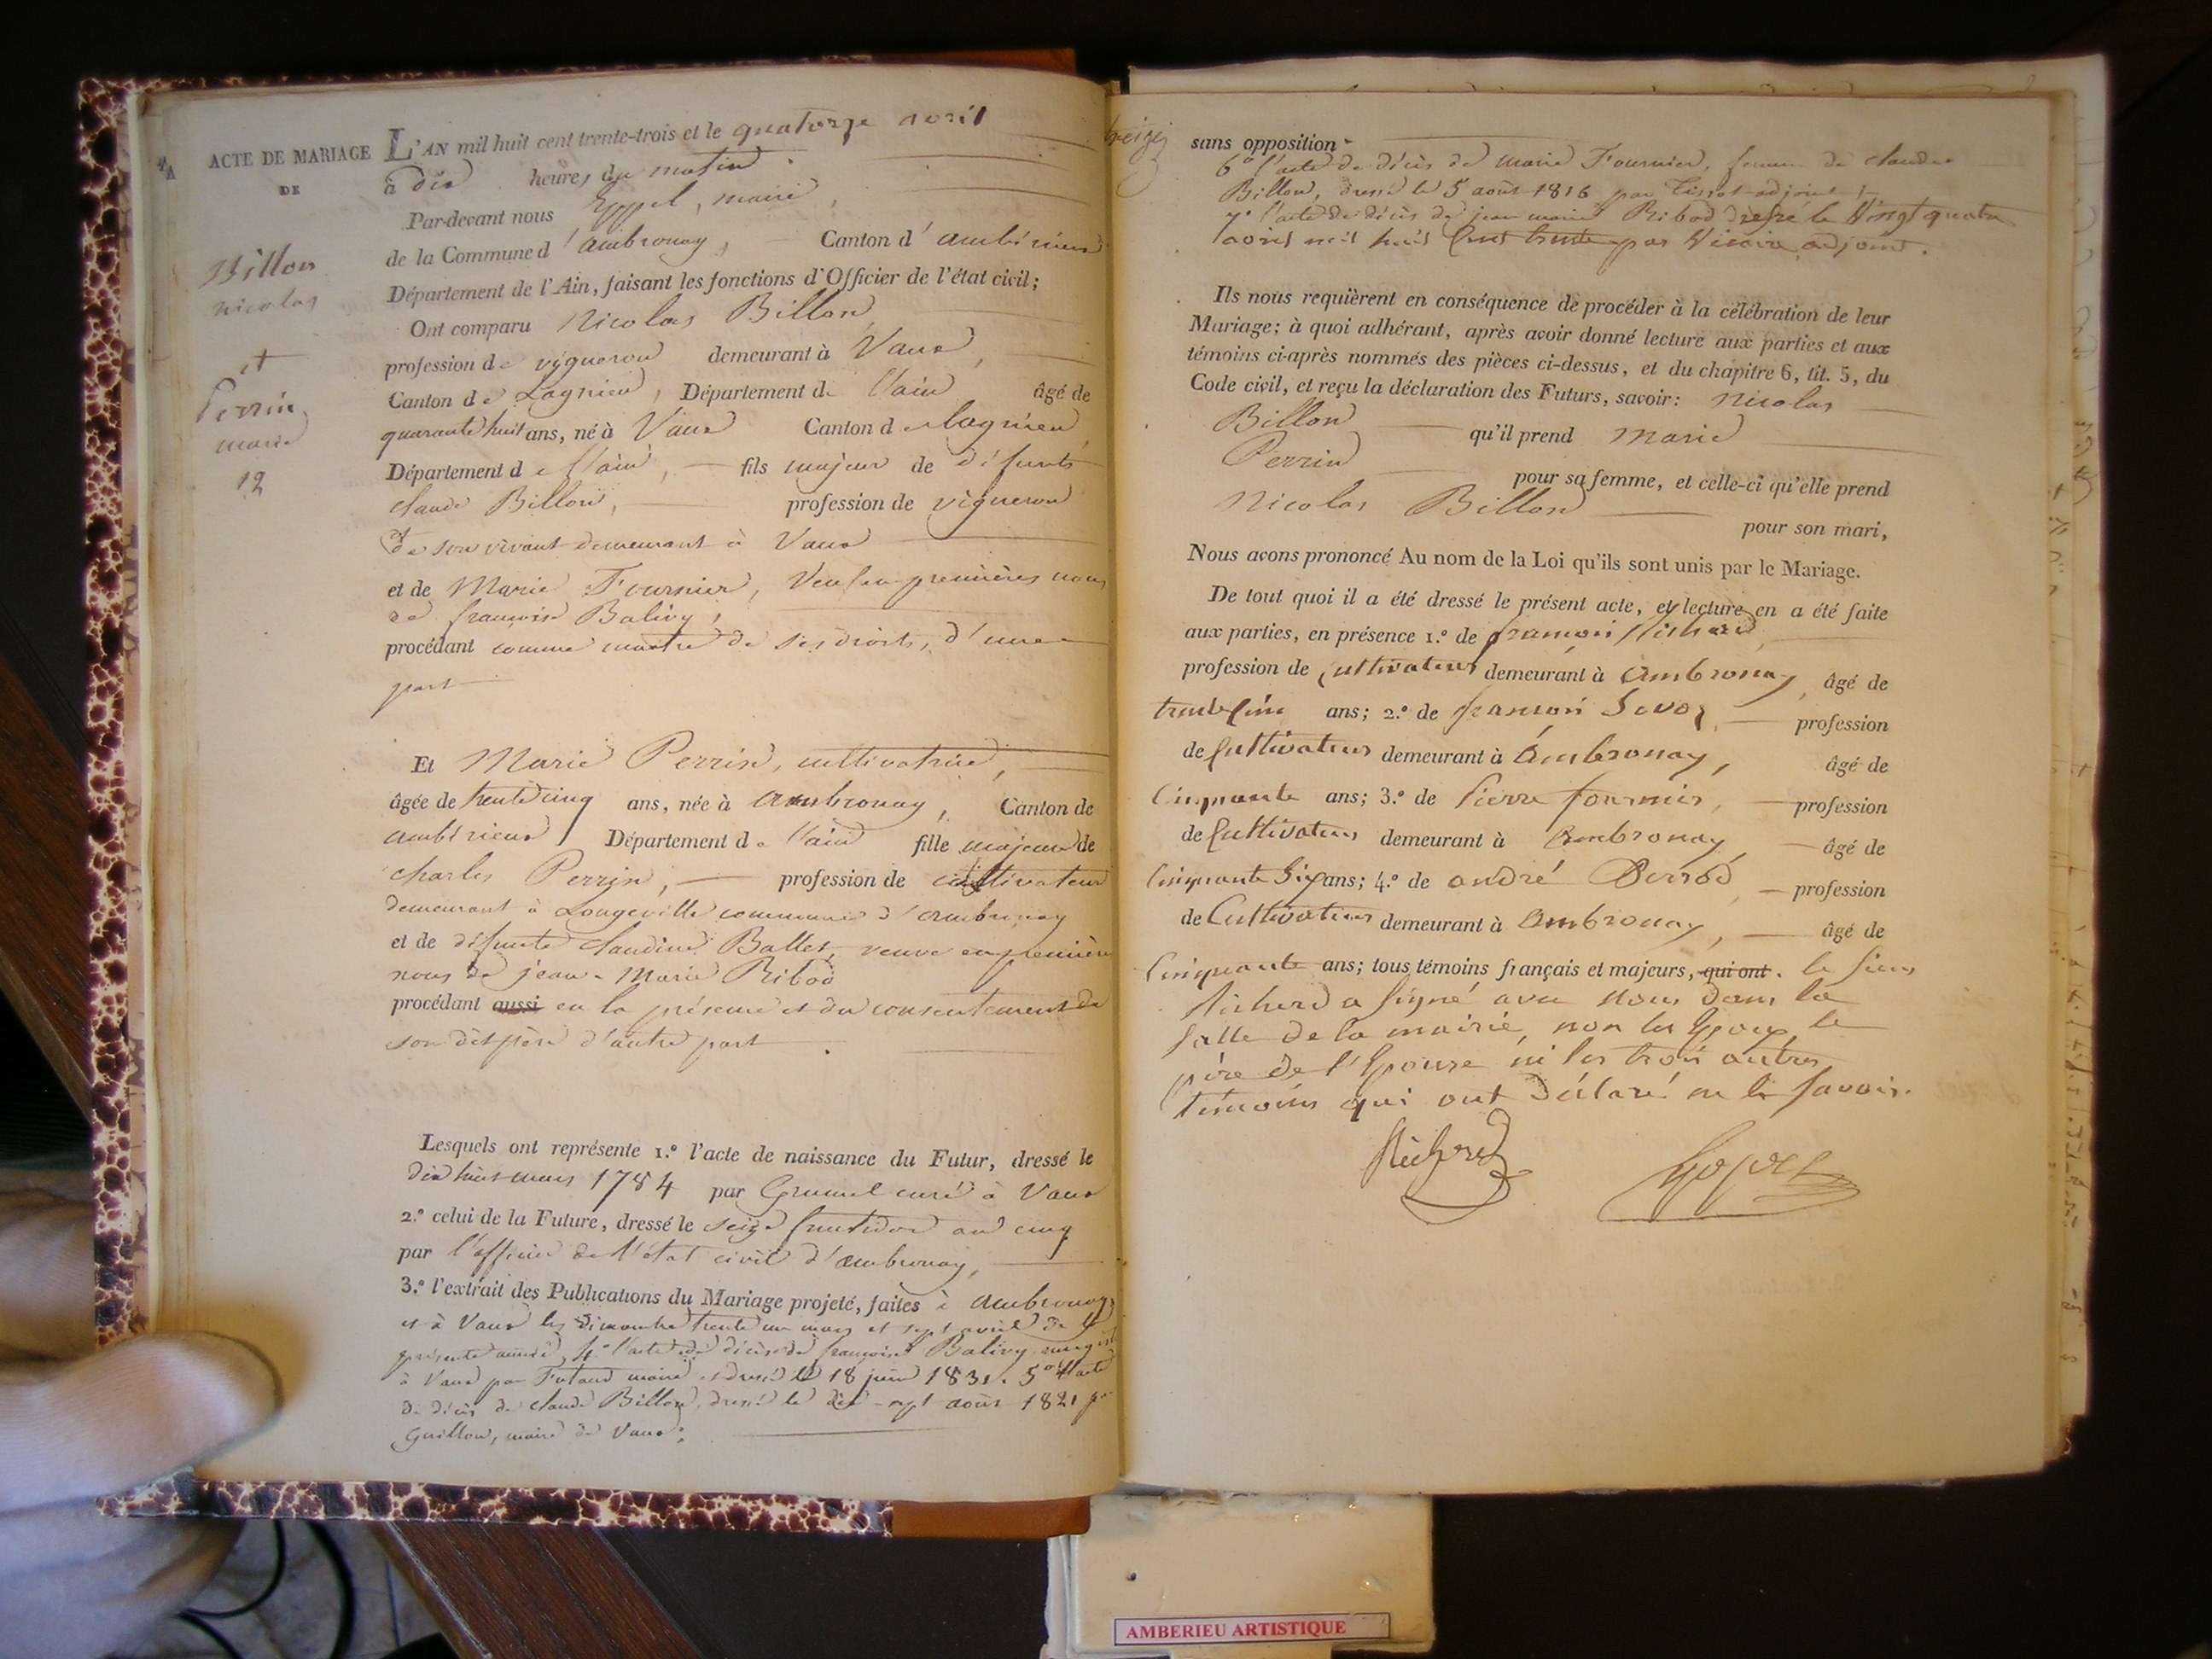 ACTE DE MARIAGE
DE
Billon
nicolas
et
Perrin
marie
12
L'AN mil huit cent trente-trois et le quatorze avril
à dix heures du matin
Par-devant nous Goppel, maire,
de la Commune d'ambronay, Canton d'ambérieux
Département de l'Ain, faisant les fonctions d'Officier de l'état civil;
Ont comparu Nicolas Billon
profession de vigneron demeurant à Vaux,
Canton de Lagnieu, Département de l'ain âgé de
quarante huit ans, né à Vaux Canton de lagnieu,
Département de l'ain, fils majeur de défunts
claude Billon, profession de vigneron
de son vivant demeurant à Vaux
et de Marie Fournier, Veuf en premières noces
de françoise Balivy,
procédant comme maitre de ses droits, d'une
part
Et Marie Perrin, cultivatrice,
âgée de trente cinq ans, née à ambronay, Canton de
ambérieux Département de l'ain fille majeure de
charles Perrin, profession de cultivateur
demeurant à Longeville commune d'ambronay
et de défunte claudine Ballet, veuve en première
noces de jean-Marie Ribod
procédant aussi en la présence et du consentement de
son dit père d'autre part
Lesquels ont représente 1.º l'acte de naissance du Futur, dressé le
dix huit mars 1784 par curé à Vaux
2.º celui de la Future, dressé le seize fructidor an cinq
par l'officier de l'état civil d'ambronay,
3.º l'extrait des Publications du Mariage projeté, faites à ambronay
et à Vaux les dimanche trente un mars et sept avril de la
présente année, 4º l'acte de décès de françoise Balivy
à Vaux par maire dressé le 18 juin 1831. 5º l'acte
de décès de claude Billon, dressé le dix-sept août 1821 par
Guillon, maire de Vaux;
treize
sans opposition
6º l'acte de décès de marie Fournier, femme de claude
Billon, dressé le 5 août 1816 par Tissot adjoint
7º l'acte de décès de jean marie Ribod dressé le Vingt quatre
avril mil huit Cent trente par adjoint.
Ils nous requièrent en conséquence de procéder à la célébration de leur
Mariage; à quoi adhérant, après avoir donné lecture aux parties et aux
témoins ci-après nommés des pièces ci-dessus, et du chapitre 6, tit. 5, du
Code civil, et reçu la déclaration des Futurs, savoir: Nicolas
Billon qu'il prend Marie
Perrin
pour sa femme, et celle-ci qu'elle prend
Nicolas Billon
pour son mari,
Nous avons prononcé Au nom de la Loi qu'ils sont unis par le Mariage.
De tout quoi il a été dressé le présent acte, et lecture en a été faite
aux parties, en présence 1.º de françois Richerd,
profession de Cultivateur demeurant à Ambronay, âgé de
trente cinq ans; 2.º de françois Savoy, profession
de Cultivateur demeurant à Ambronay, âgé de
Cinquante ans; 3.º de Pierre fournier, profession
de Cultivateur demeurant à Ambronay, âgé de
Cinquante Six ans; 4.º de andré profession
de Cultivateur demeurant à Ambronay, âgé de
Cinquante ans; tous témoins français et majeurs, qui ont. le Sieur
Richerd a Signé avec nous dans la
Salle de la mairie, non les Epoux le
père de l'Epouse ni les trois autres
témoins qui ont déclaré ne le savoir.
Richerd
AMBERIEU ARTISTIQUE